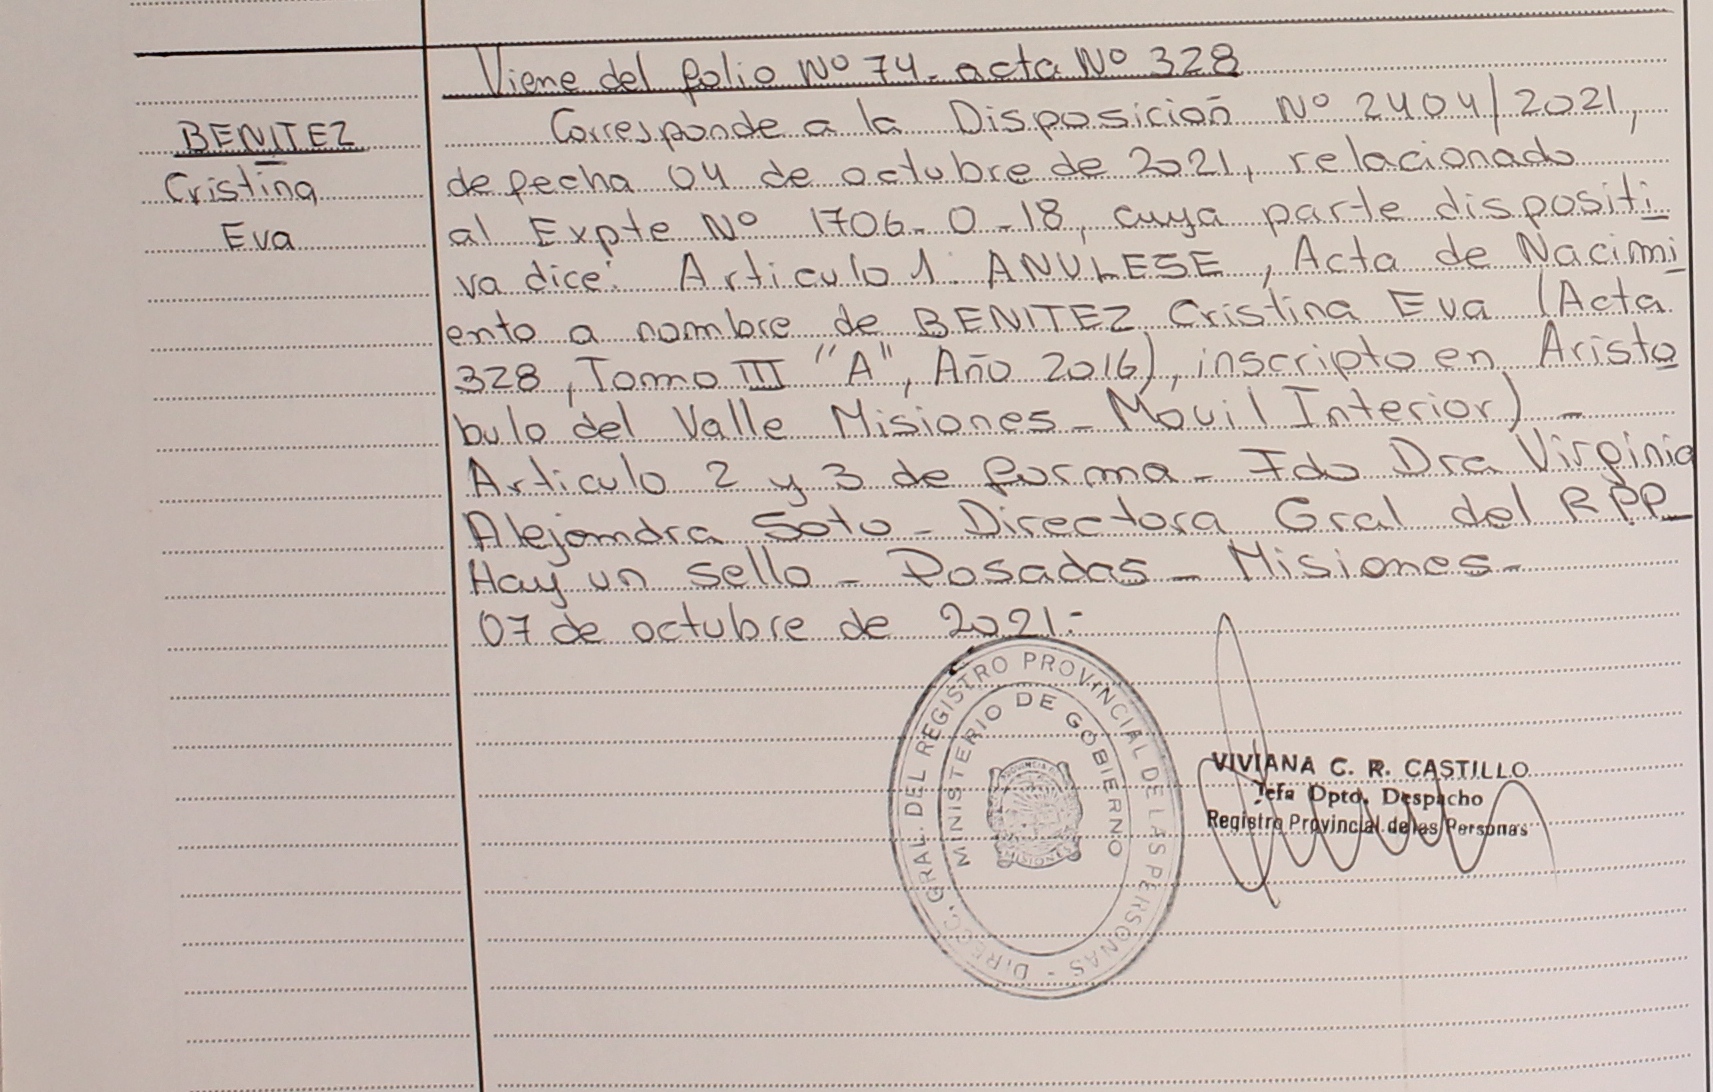 Viene del folio Nº 74- acta Nº 328
BENITEZ
Cristina
Eva
Corresponde a la Disposición Nº 2404/2021,
de fecha 04 de octubre de 2021, relacionado
al Expte Nº 1706-0-18, cuya parte dispositi
va dice: Articulo 1. ANULESE, Acta de Nacimi
ento a nombre de BENITEZ Cristina Eva (Acta
328, Tomo III "A", Año 2016), inscripto en Aristo
bulo del Valle Misiones- Movil Interior) -
Articulo 2 y 3 de forma- Fdo Dra Virginia
Alejandra Soto - Directora Gral del RPP-
Hay un sello - Posadas - Misiones-
07 de octubre de 2021.-
DIRECC. GRAL. DEL REGISTRO PROVINCIAL DE LAS PERSONAS -
MINISTERIO DE GOBIERNO
PROVINCIA DE
MISIONES
VIVIANA C. R. CASTILLO
Jefa Dpto. Despacho
Registro Provincial de las Personas